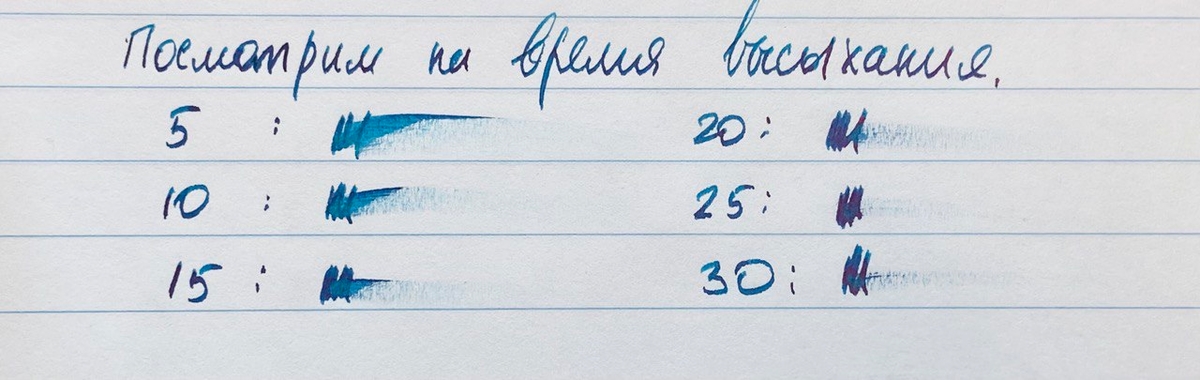 Посмотрим на время высыхания.
5 : 20:
10 : 25:
15 : 30: